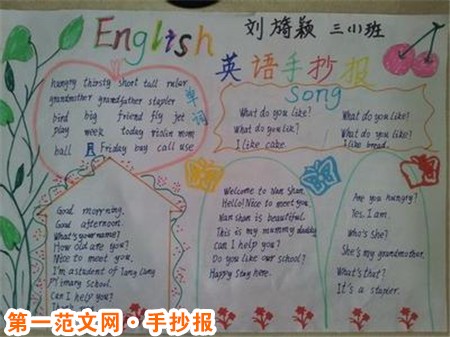 English
刘旖颖 三(1)班
英语手抄报
hungry thirsty short tall ruler
grandmother grandfather stapler
bird big friend fly jet
play week today violin mom
ball Friday buy call use
单词
Song
What do you like? What do you like?
What do you lik? What do you like?
I like cake. I like bread.
Good morrning.
Good afternoon.
What's your name?
How old are you?
Nice to meet you.
I'm a student of long lang
Primary school.
Can I help you?
Thank's
Welcome to Nan Shan.
Hello! Nice to meet you
Nan shan is beautiful.
This is my mummy daddy
Can I help you?
Do you like our school?
Happy stay here.
Are you hungry?
Yes. I am.
Who's She?
She's my grandmother.
What's that?
It's a stapler.
第一范文网·手抄报